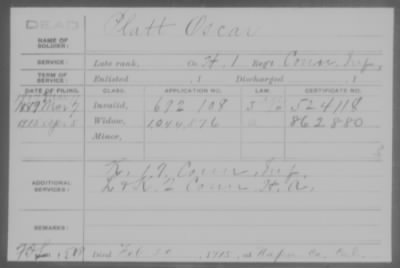 DEAD
NAME OF SOLDIER: Platt Oscar
SERVICE: Late rank, Co. H. 1 Reg't Conn. Inf,
TERM OF SERVICE: Enlisted , 1 Discharged , 1
DATE OF FILING. CLASS. APPLICATION NO. LAW. CERTIFICATE NO.
1889 Mar 7 Invalid, 692 108 524118
1915 Widow, 1044,876 862880
Minor,
ADDITIONAL SERVICES: K. 19. Conn. Inf.
L & K. 2 Conn. H. A.
REMARKS:
Died Feb 1915, at Napa Co. Cal.